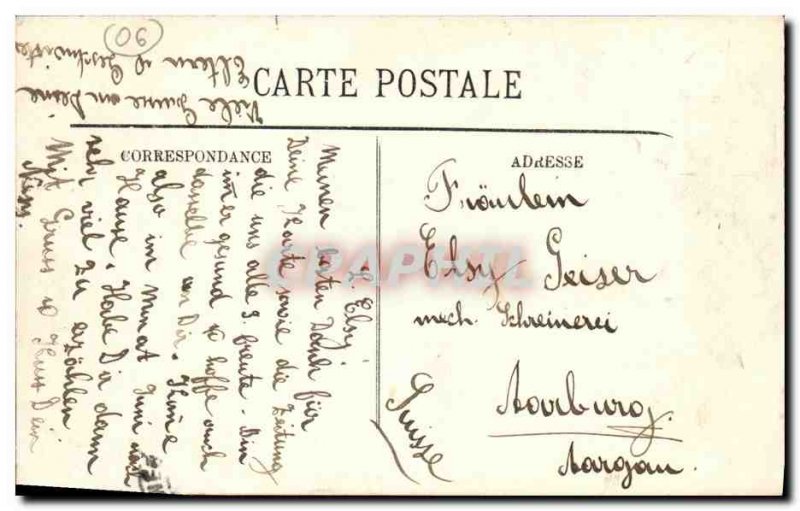 90
CARTE POSTALE
CORRESPONDANCE
ADRESSE
L. Elsy!
Meinen besten Dank für
Deine Karte sowie die Zeitung
die uns alle s. freute. Bin
immer gesund & hoffe auch
dasselbe von Dir. Komme
also im Monat Juni nach
Hause. Habe Dir dann
sehr viel zu erzählen
Mit Gruss & Kuss Dein
Viele Grüsse an Deine
Eltern u Geschwister
Fräulein
Elsy Geiser
mech. Schreinerei
Aarburg.
Aargau.
Suisse
CPAPHIL